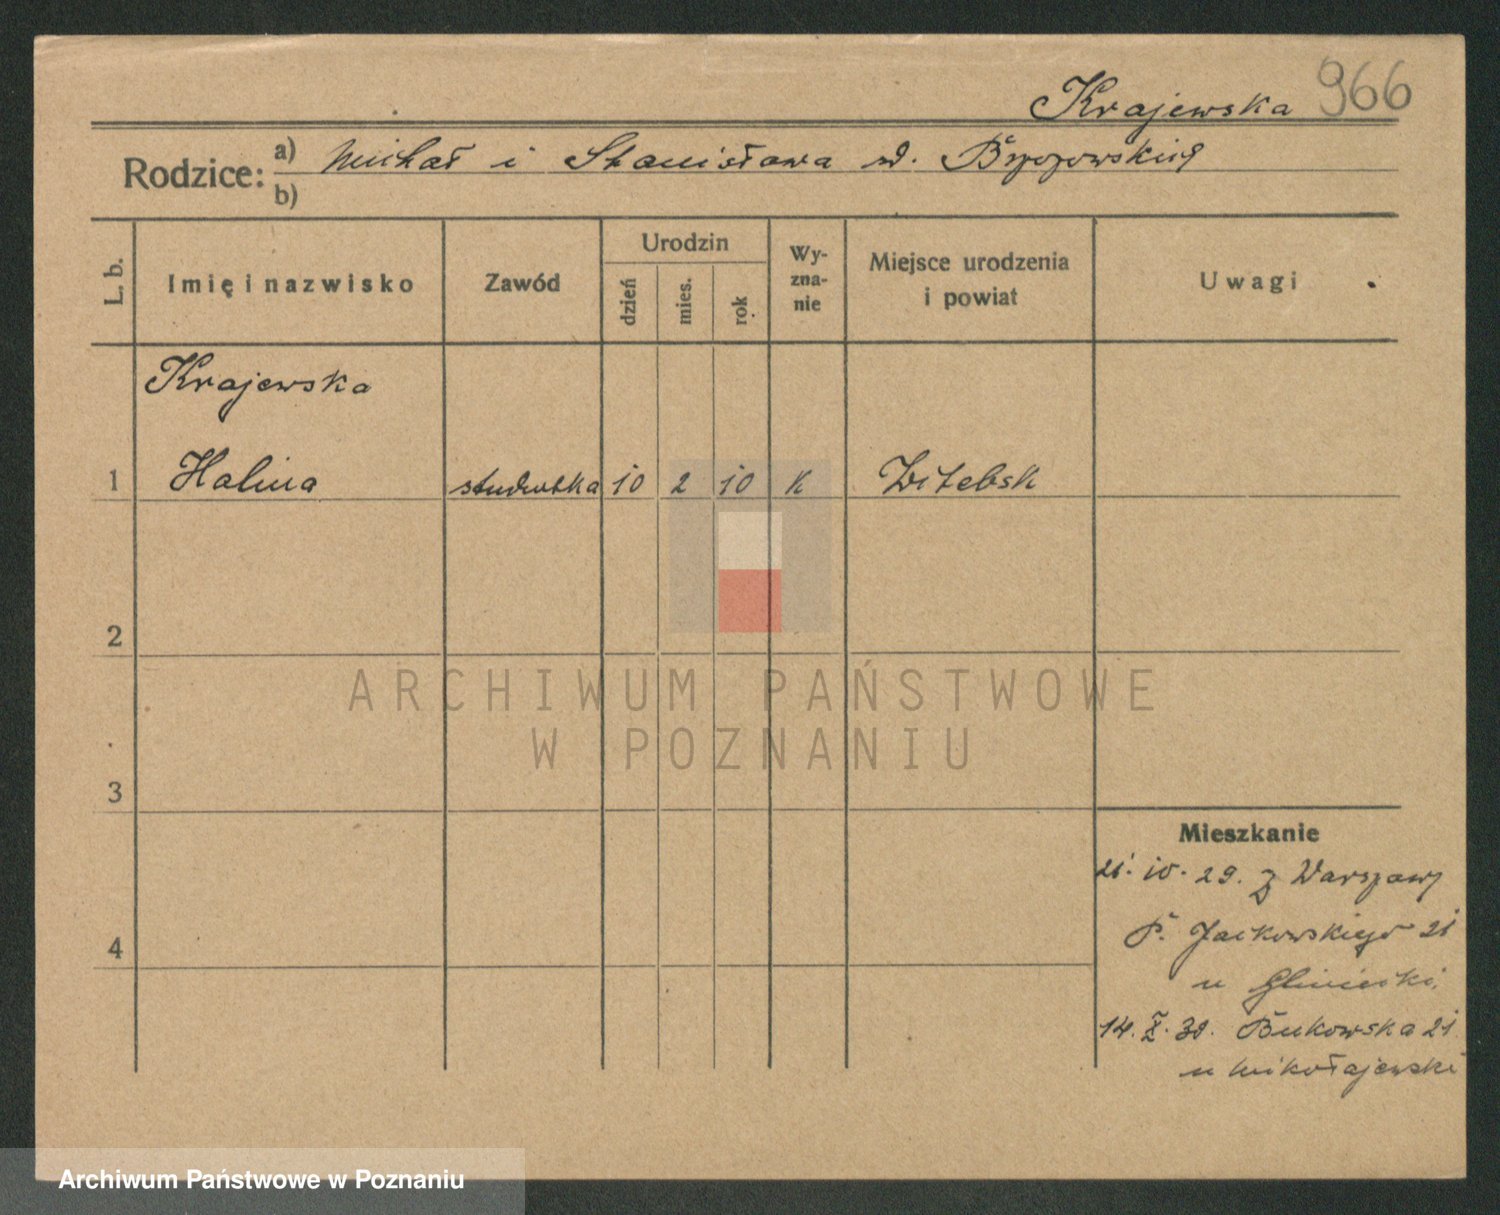 Krajewska 966
Rodzice: a) Michał i Stanisława d. Brzozowskich
b)
L. b. Imię i nazwisko Zawód Urodzin dzień mies. rok Wy-zna-nie Miejsce urodzenia i powiat Uwagi
Krajewska
1 Halina studentka 10 2 10 K Witebsk
2
ARCHIWUM PAŃSTWOWE
W POZNANIU
3
Mieszkanie
21. 10. 29. z Warszawy
P. Jackowskiego 21
4
u
14. X. 30. Bukowska 21
u Mikołajewski
Archiwum Państwowe w Poznaniu